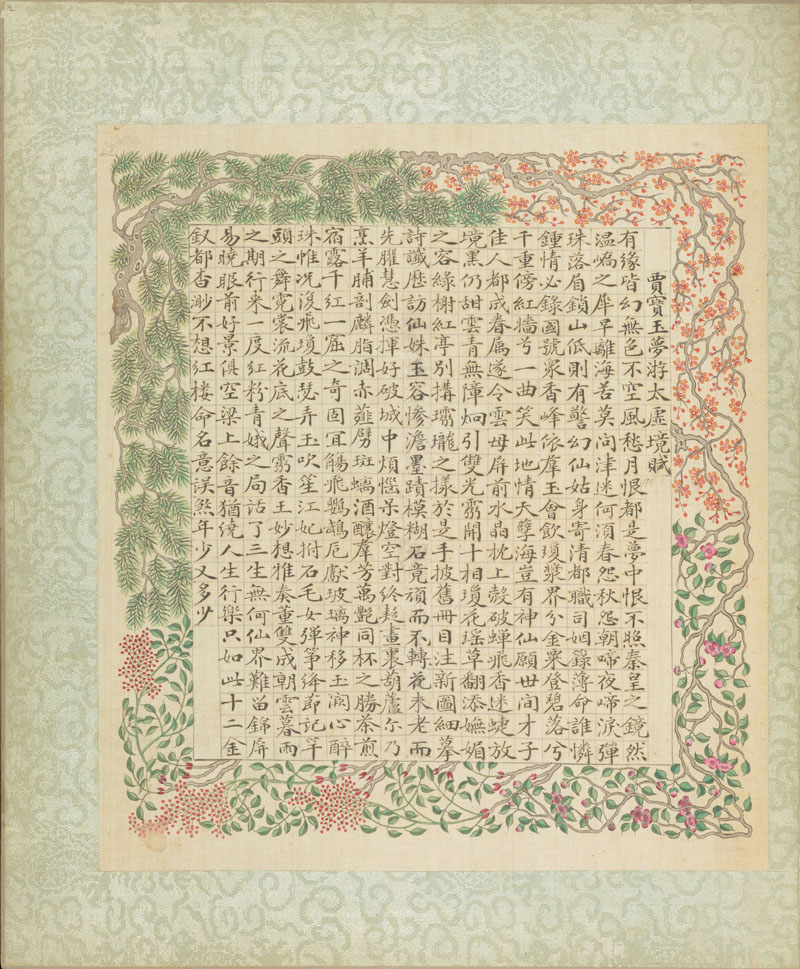 賈寶玉夢游太虛境賦
有緣皆幻無色不空風愁月恨都是夢中恨不照秦皇之鏡然
温嶠之犀早離海苦莫問津迷何須春怨秋怨朝啼夜啼淚彈
珠落眉鎖山低則有警幻仙姑身寄清都職司姻籙薄命誰憐
鍾情必錄國號眾香峰依羣玉會飲瓊漿界分金粟登碧落兮
千重傍紅牆兮一曲笑此地情天孽海豈有神仙願世間才子
佳人都成眷屬遂令雲母屏前水晶枕上殼破蟬飛香迷蜨放
境黑仍甜雲青無障炯引雙光霱開十相瓊花瑶草翻添嫵媚
之容綠榭紅亭別搆瓏之樣於是手披舊冊目注新圖細摹
詩讖歷訪仙姝玉容慘澹墨蹟模糊石竟頑而不轉花未老而
先臞慧劍憑揮好破城中煩惱呆燈空對終疑畫裏葫蘆尓乃
烹羊脯剖麟脂凋赤薤劈斑螭酒釀羣芳萬艷同杯之勝茶煎
宿露千紅一窟之奇固宜觴飛鸚鵡卮獻玻璃神移玉闕心醉
珠帷况復飛瓊鼓瑟弄玉吹笙江妃拊石毛女彈箏絳節記竿
頭之舞霓裳流花底之聲霱香王妙想雅奏董雙成朝雲暮雨
之期行来一度紅粉青娥之局話了三生無何仙界難留錦屏
易曉眼前好景俱空梁上餘音猶繞人生行樂只如此十二金
釵都杳渺不想紅楼命名意誤煞年少又多少